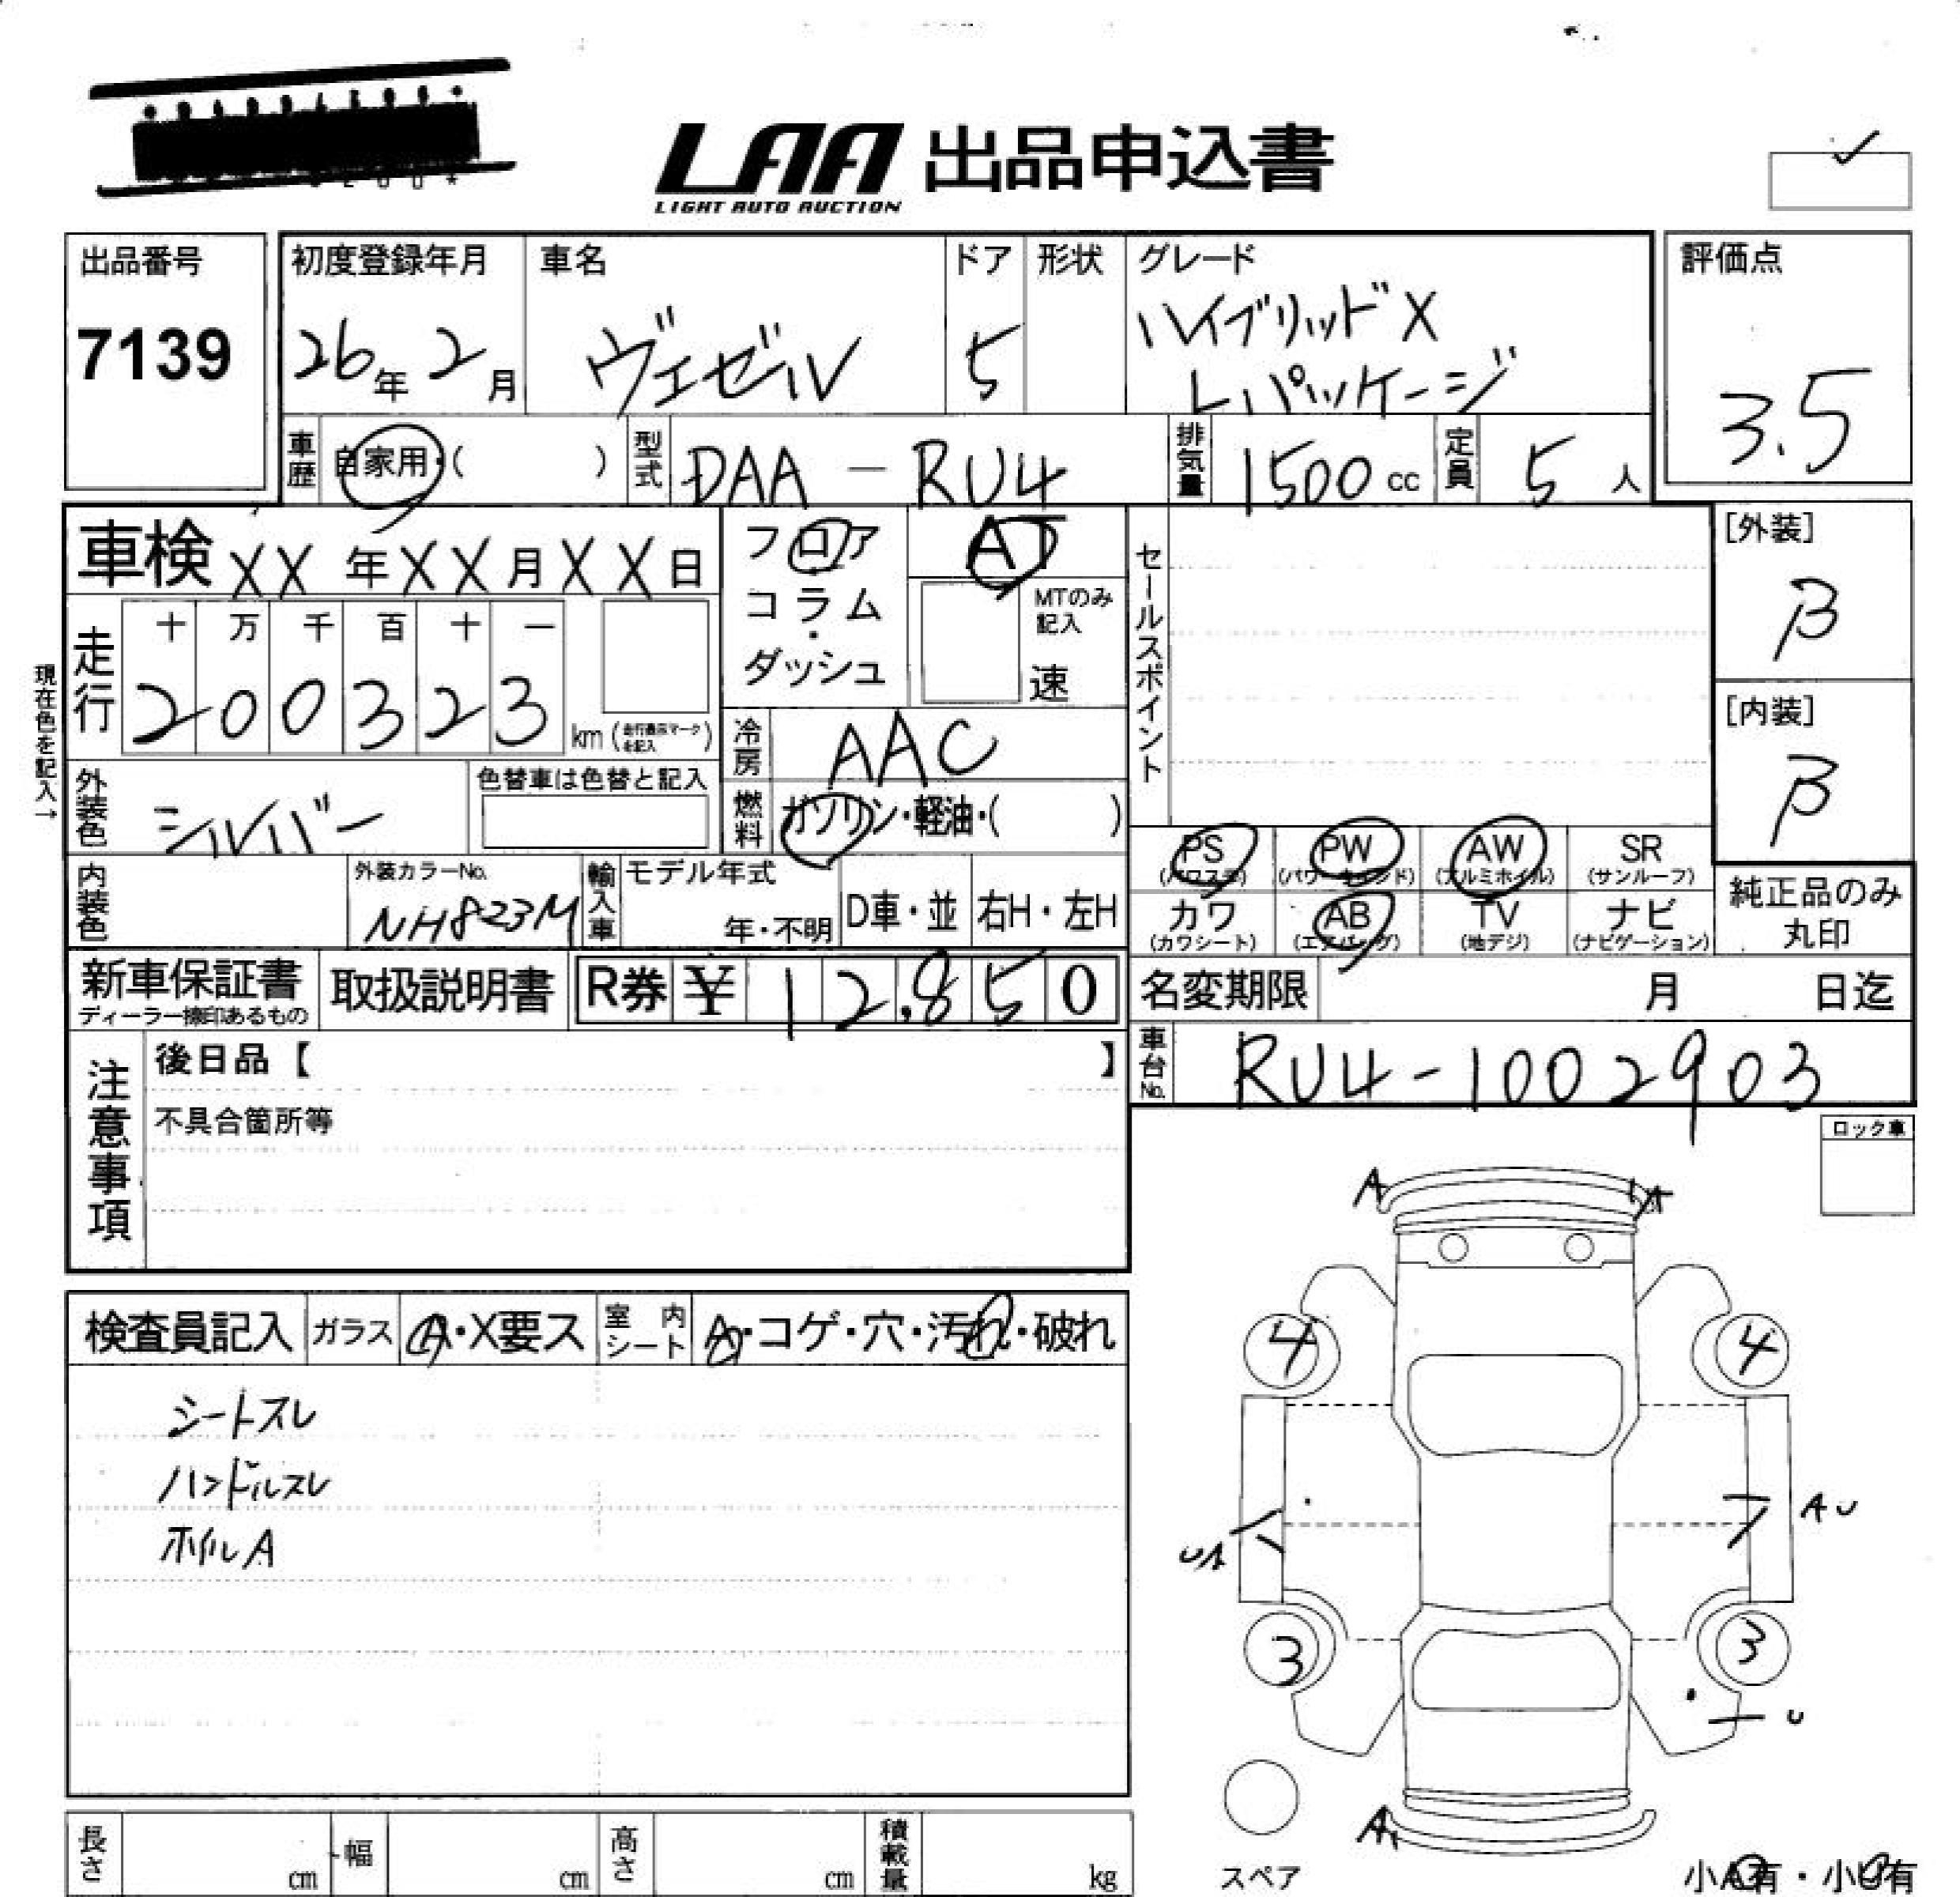 LAA 出品申込書
LIGHT AUTO AUCTION
出品番号
7139
初度登録年月
26年2月
車名
ヴェゼル
ドア
5
形状
グレード
ハイブリッドX
Lパッケージ
評価点
3.5
車歴 自家用・( )
型式 DAA-RU4
排気量 1500cc
定員 5人
車検 XX年XX月XX日
フロア
コラム
・
ダッシュ
AT
MTのみ
記入
速
セールスポイント
[外装]
β
[内装]
β
現在色を記入→
走行
十 万 千 百 十 一
2 0 0 3 2 3 km(走行表示マークを記入)
冷房 AAC
外装色 シルバー
色替車は色替と記入
燃料 ガソリン・軽油・( )
PS
(パワステ)
PW
(パワーウインド)
AW
(アルミホイル)
SR
(サンルーフ)
カワ
(カワシート)
AB
(エアバッグ)
TV
(地デジ)
ナビ
(ナビゲーション)
純正品のみ
丸印
内装色
外装カラーNo.
NH823M
輸入車
モデル年式
年・不明
D車・並
右H・左H
新車保証書
取扱説明書
R券 ¥ 12,850
名変期限 月 日迄
車台No. RU4-1002903
注意事項
後日品【 】
不具合箇所等
ロック車
検査員記入
ガラス A・X要ス
室内シート A・コゲ・穴・汚れ・破れ
シートスレ
ハンドルスレ
ホイルA
A
A
4
4
UA
AU
3
3
U
A
スペア
小A有・小U有
長さ cm
幅 cm
高さ cm
積載量 kg